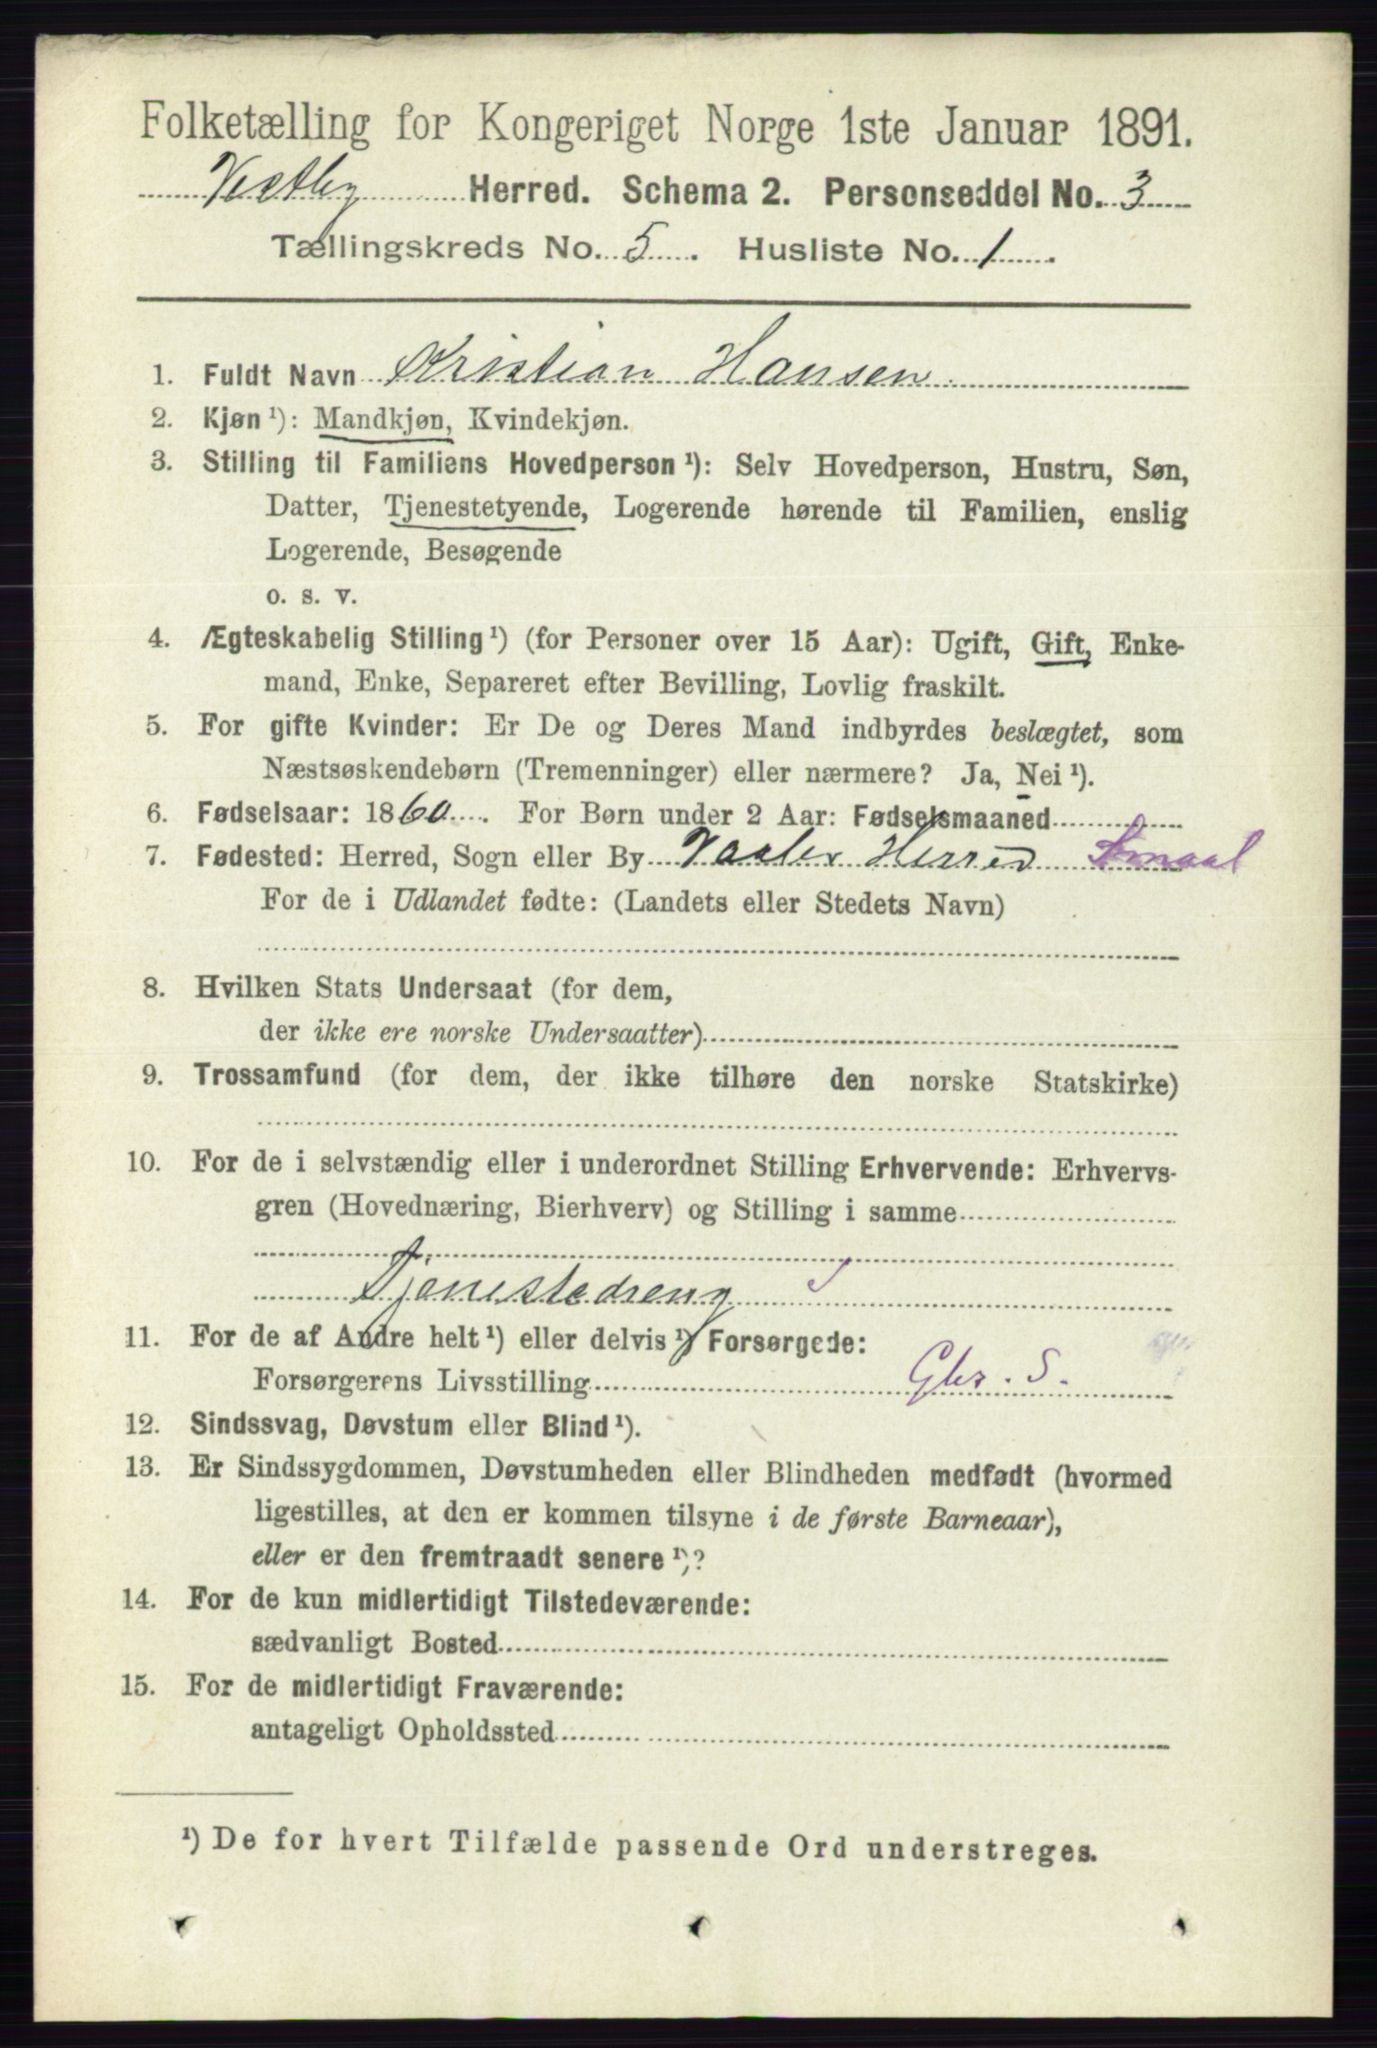 Folketælling for Kongeriget Norge 1ste Januar 1891.
Vestby Herred. Schema 2. Personseddel No. 3
Tællingskreds No. 5. Husliste No. 1.
1. Fuldt Navn Kristian Hansen.
2. Kjøn ¹): Mandkjøn, Kvindekjøn.
3. Stilling til Familiens Hovedperson ¹): Selv Hovedperson, Hustru, Søn,
Datter, Tjenestetyende, Logerende hørende til Familien, enslig
Logerende, Besøgende
o. s. v.
4. Ægteskabelig Stilling ¹) (for Personer over 15 Aar): Ugift, Gift, Enke-
mand, Enke, Separeret efter Bevilling, Lovlig fraskilt.
5. For gifte Kvinder: Er De og Deres Mand indbyrdes beslægtet, som
Næstsøskendebørn (Tremenninger) eller nærmere? Ja, Nei ¹).
6. Fødselsaar: 1860. For Børn under 2 Aar: Fødselsmaaned
7. Fødested: Herred, Sogn eller By Vaaler Herred Smaal
For de i Udlandet fødte: (Landets eller Stedets Navn)
8. Hvilken Stats Undersaat (for dem,
der ikke ere norske Undersaatter)
9. Trossamfund (for dem, der ikke tilhøre den norske Statskirke)
10. For de i selvstændig eller i underordnet Stilling Erhvervende: Erhvervs-
gren (Hovednæring, Bierhverv) og Stilling i samme
Tjenestedreng
11. For de af Andre helt ¹) eller delvis ¹) Forsørgede:
Forsørgerens Livsstilling Gbr. S.
12. Sindssvag, Døvstum eller Blind ¹).
13. Er Sindssygdommen, Døvstumheden eller Blindheden medfødt (hvormed
ligestilles, at den er kommen tilsyne i de første Barneaar),
eller er den fremtraadt senere ¹)?
14. For de kun midlertidigt Tilstedeværende:
sædvanligt Bosted
15. For de midlertidigt Fraværende:
antageligt Opholdssted
¹) De for hvert Tilfælde passende Ord understreges.